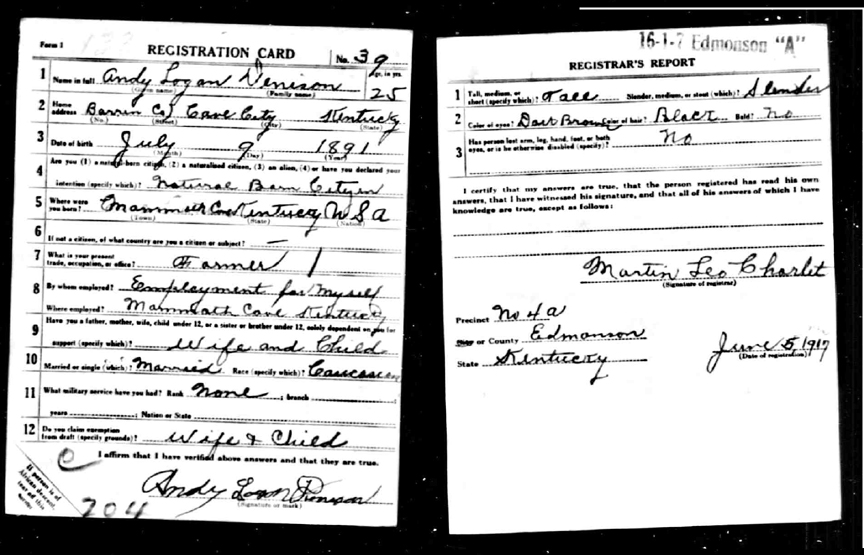 Form 1
REGISTRATION CARD No. 39
1 Name in full Andy Logan Denison Age, in yrs. 25
(Given name) (Family name)
2 Home address Barrin Co, Cave City Kentucky
(No.) (Street) (City) (State)
3 Date of birth July 9 1891
(Month) (Day) (Year)
4 Are you (1) a natural-born citizen, (2) a naturalized citizen, (3) an alien, (4) or have you declared your
intention (specify which)? Natural Barn Citizen
5 Where were you born? Mammoth Cave Kentucky U S A
(Town) (State) (Nation)
6 If not a citizen, of what country are you a citizen or subject? —
7 What is your present trade, occupation, or office? Farmer 1
8 By whom employed? Employment for Myself
Where employed? Mammath Cave Kentucky
9 Have you a father, mother, wife, child under 12, or a sister or brother under 12, solely dependent on you for
support (specify which)? Wife and Child
10 Married or single (which)? Married Race (specify which)? Caucasian
11 What military service have you had? Rank None ; branch ;
years ; Nation or State
12 Do you claim exemption from draft (specify grounds)? Wife & Child
I affirm that I have verified above answers and that they are true.
Andy Logan Denison
(Signature or mark)
If person is of African descent, tear off this corner.
204
16-1-7 Edmonson "A"
REGISTRAR'S REPORT
1 Tall, medium, or short (specify which)? Tall Slender, medium, or stout (which)? Slender
2 Color of eyes? Dark Brown Color of hair? Black Bald? No
3 Has person lost arm, leg, hand, foot, or both eyes, or is he otherwise disabled (specify)? No
I certify that my answers are true, that the person registered has read his own
answers, that I have witnessed his signature, and that all of his answers of which I have
knowledge are true, except as follows:
Martin Leo Charlet
(Signature of registrar)
Precinct No 4 a
City or County Edmonson
State Kentucky
June 5, 1917
(Date of registration)